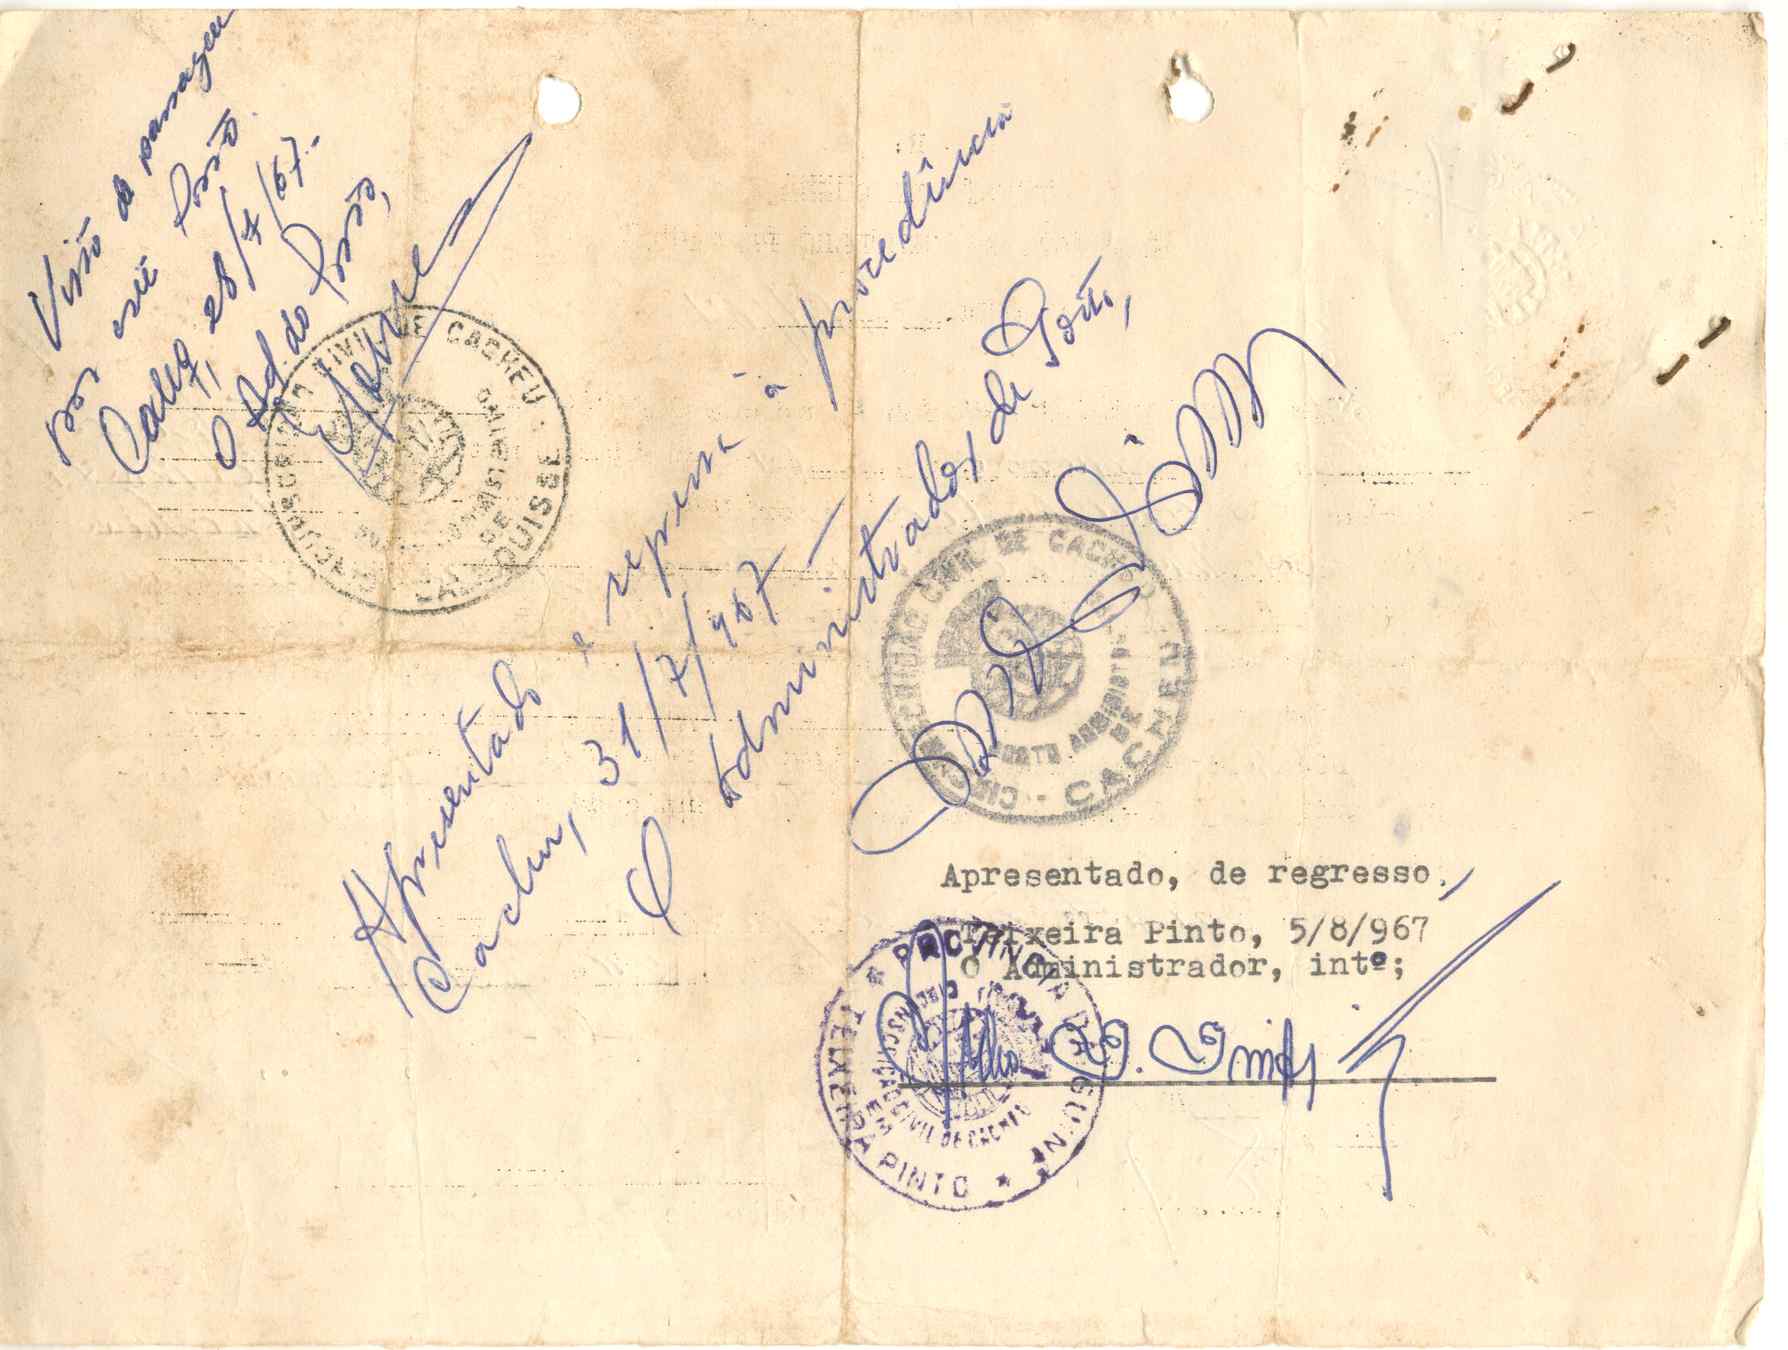 Visto de passagem
por este Posto.
28/7/67.-
O Adm. do Posto,
CIRCUNSCRIÇÃO CIVIL DE CACHEU -
CALEQUISSE
Apresentado e regressa à procedência
Cacheu, 31/7/967 -
O Administrador de Posto,
CIRCUNSCRIÇÃO CIVIL DE CACHEU -
POSTO ADMINISTR
DE
CACHEU
Apresentado, de regresso,
Teixeira Pinto, 5/8/967
O Administrador, intº;
PROVINCIA DA GUINÉ
CIRCUNSCRIÇÃO CIVIL DE CACHEU
EM
TEIXEIRA PINTO